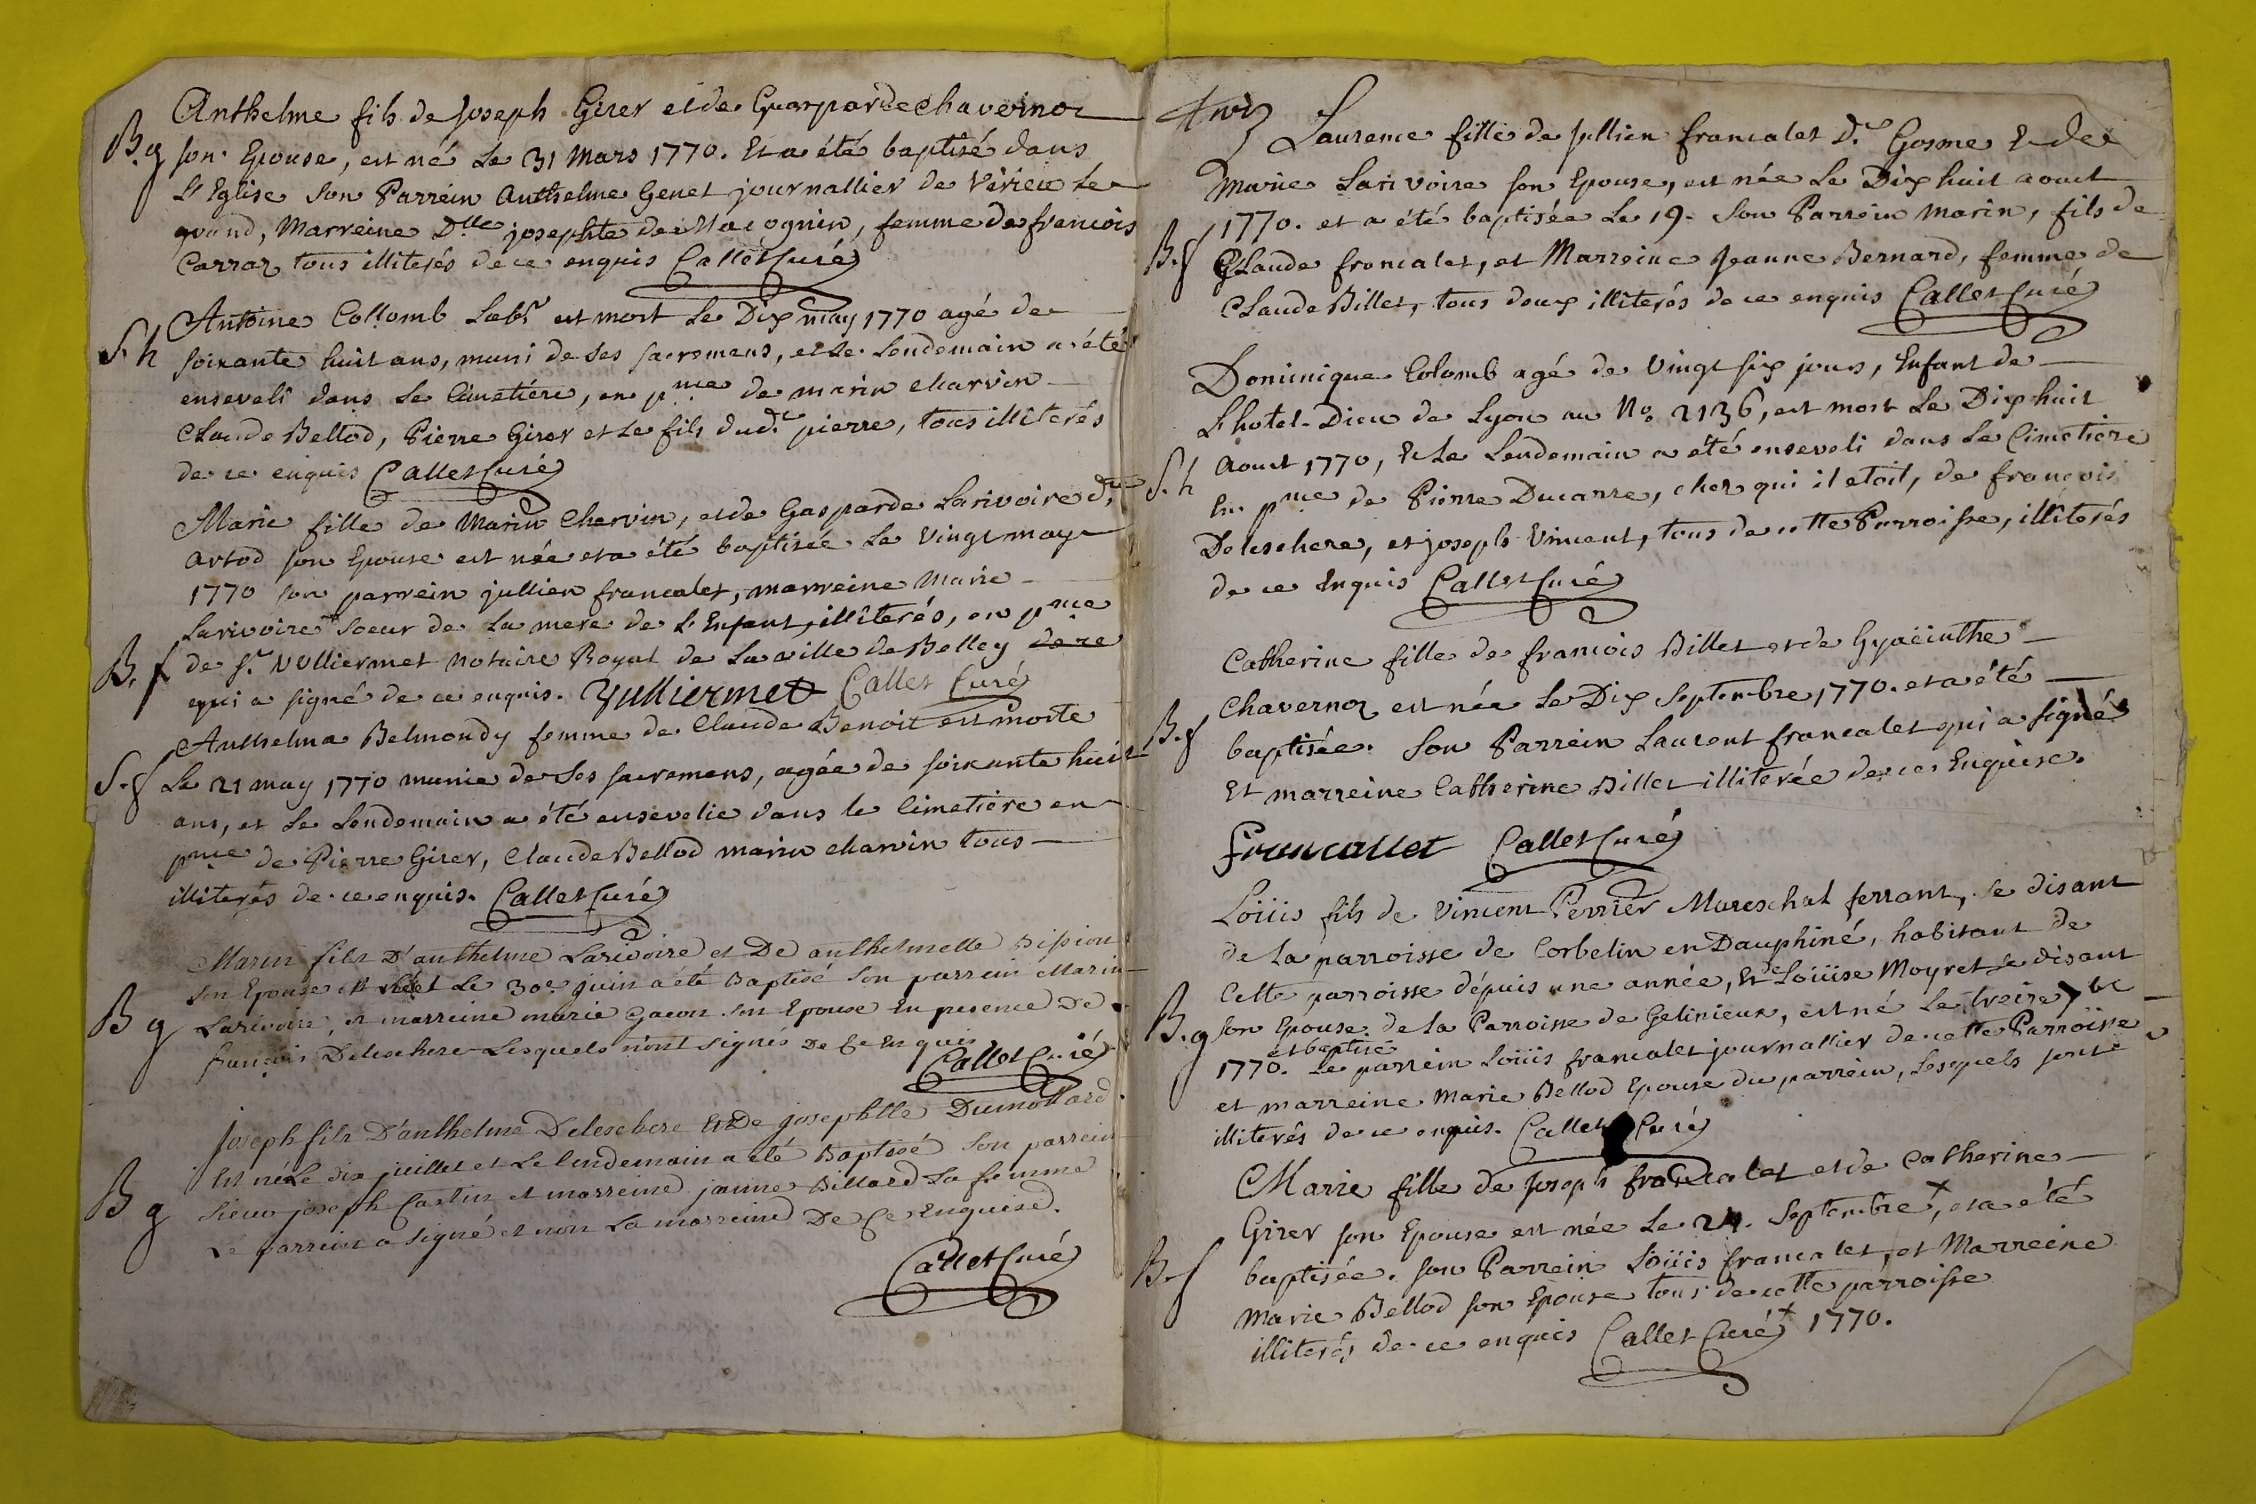 Anthelme fils de Joseph Girer et de Guasparde Chavernoz
B. g son Epouse, est né Le 31 Mars 1770. Et a été baptisé dans
L'Eglise son Parrein Anthelme Genet journallier de Virieu Le
grand, Marreine Dlle josephte de Macognin, femme de francois
Carraz tous illiterés de ce enquis Callet Curé
Antoine Collomb Labr est mort Le Dix may 1770 agé de
S. h soixante huit ans, muni de ses sacremens, et Le Lendemain a été
enseveli dans Le Cimetiére, en pnce de marin charvin
Claude Bellod, Pierre Girer et Le fils dudt pierre, tous illiterés
de ce enquis Callet Curé
Marie fille de Marin Chervin, et de Gasparde Larivoire dt
artod son Epouse est née et a été baptisée Le Vingt may
1770 son parrein jullien francalet, marreine Marie
Larivoire soeur de La mere de L'Enfant, illiterés, en pnce
B. f de Sr Vulliermet notaire Royal de La ville de Belley de ce
qui a signé de ce enquis. Vulliermet Callet Curé
Anthelma Belmondy femme de Claude Benoit est morte
S. f Le 21 may 1770 munie de Ses sacremens, agée de soixante huit
ans, et Le Lendemain a été ensevelie dans le Cimetiére en
pnce de Pierre Girer, Claude Bellod marin charvin tous
illiterés de ce enquis. Callet Curé
Marin fils D'anthelme Larivoire et De anthelmette
son Epouse est né et Le 30e juin a été Baptisé son parrein Marin
B g Larivoire, et marreine marie gacon son Epouse En presence De
francois Deleschere Lesquels n'ont signés De Ce Enquis
Callet Curé
joseph fils D'anthelme Deleschere Et De josephtte Dumollard
Est né Le dix juillet et Le lendemain a été Baptisé son parrein
B g sieur joseph et marreine janne Billiard sa femme
Le parrein a signé et non La marreine De Ce Enquise.
Callet Curé
Laurence fille de jullien francalet dt Gosme Et de
Marie Larivoire son Epouse, est née Le Dix huit aoust
1770. et a été baptisée Le 19. Son Parrein Marin, fils de
B. f Claude francalet, et Marreine Jeanne Bernard, femme de
Claude Billet, tous deux illiterés de ce enquis Callet Curé
Dominique Colomb agé de Vingt six jours, Enfant de
L'hotel-Dieu de Lyon au No 2136, est mort Le Dix huit
S. h Aoust 1770, Et Le Lendemain a été enseveli dans Le Cimetiere
En pnce de Pierre Ducarre, chez qui il etoit, de françois
Deleschere, et joseph Vincent, tous de cette Parroisse, illiterés
de ce Enquis Callet Curé
Catherine fille de francois Billet et de Gyacinthe
Chavernoz est née Le Dix Septembre 1770. et a été
B. f baptisée. Son Parrein Laurent francalet qui a signé
Et marreine Catherine Billet illiterée de ce Enquise.
francallet Callet Curé
Loüis fils de Vincent Perrier Mareschal ferrant, se disant
de La parroisse de Corbelin en Dauphiné, habitant de
Cette parroisse dépuis une année, Et de Loüise Moyret se disant
B. g son Epouse de La Parroisse de Gelinieux, est né Le treize 7bre
et baptisé
1770. Le parrein Loüis francalet journallier de cette Parroisse
et marreine Marie Bellod Epouse du parrein, Lesquels sont
illiterés de ce enquis. Callet Curé
Marie fille de Joseph francalet et de Catherine
Girer son Epouse est née Le 24. Septembre x, et a été
B. f baptisée. son Parrein Loüis francalet, et Marreine
Marie Bellod son Epouse tous de cette parroisse
illiterés de ce enquis Callet Curé x 1770.